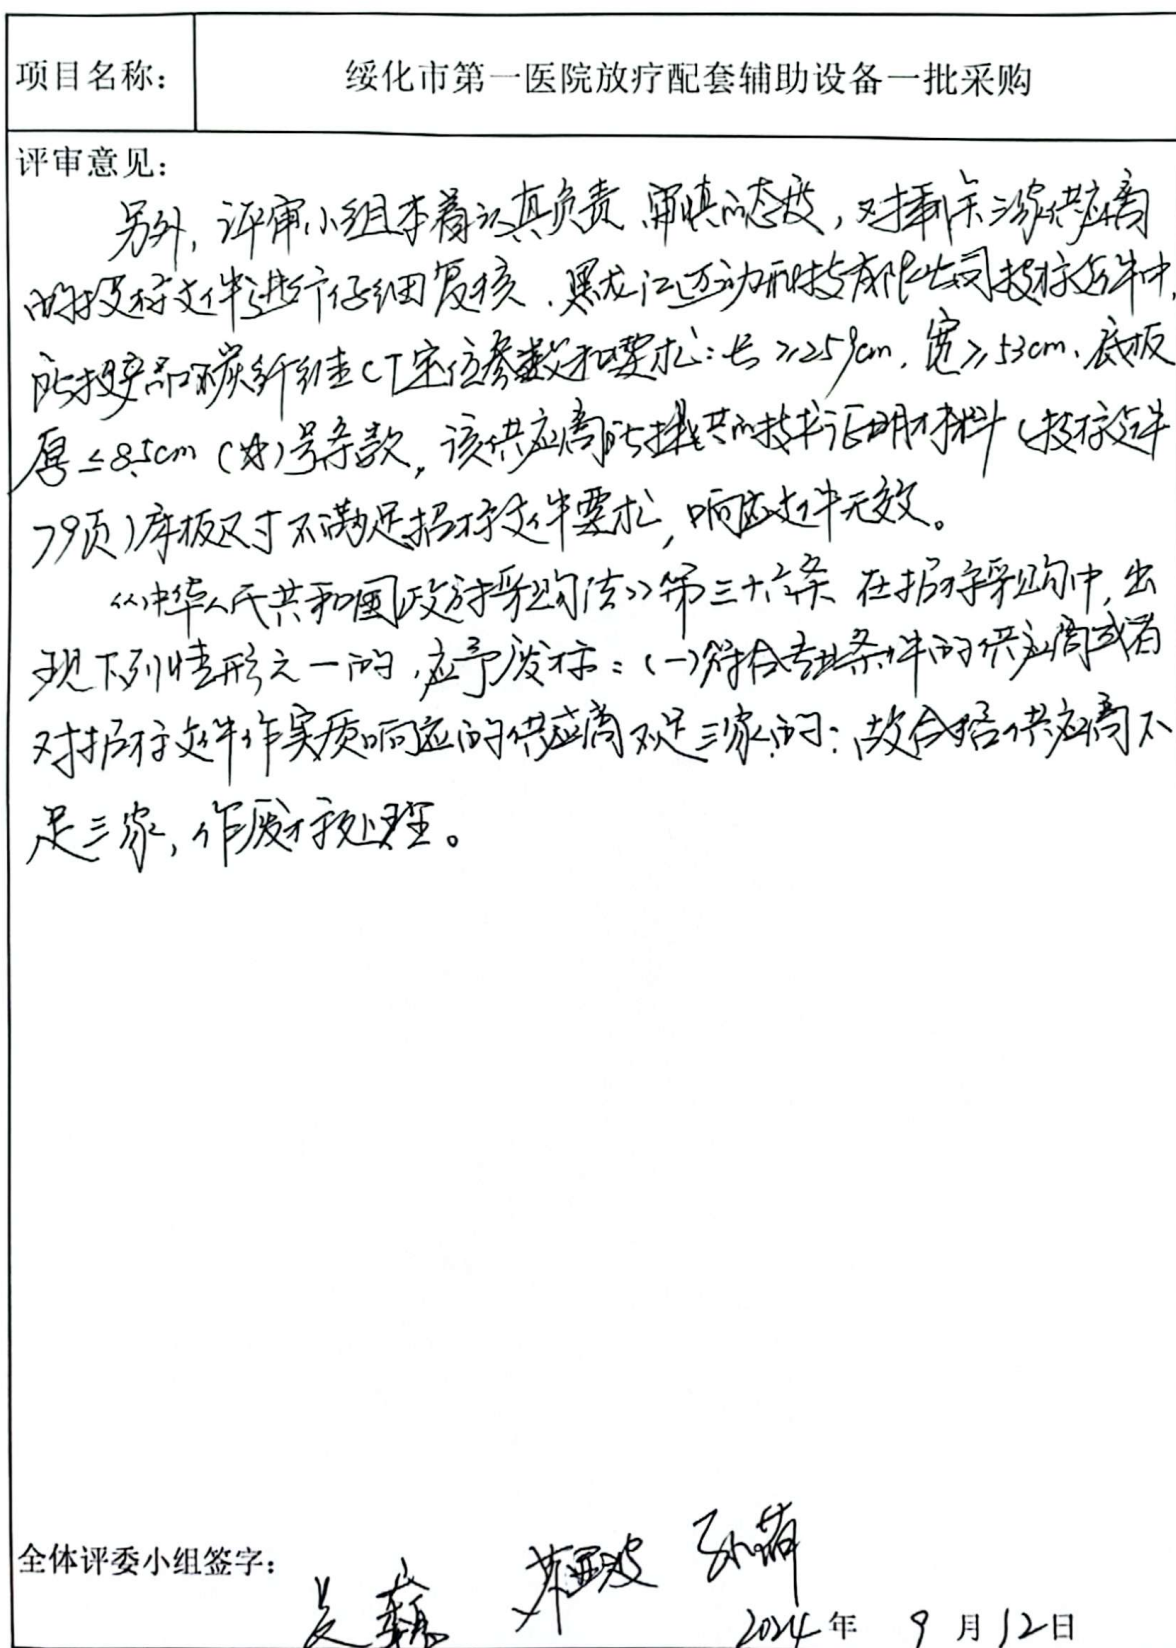 项目名称：
绥化市第一医院放疗配套辅助设备一批采购
评审意见：
另外，评审小组本着认真负责、审慎的态度，对剩余三家供应商
的投标文件进行仔细复核，黑龙江迈动科技有限公司投标文件中，
所投产品碳纤维CT定位参数和要求：长≥259cm，宽≥53cm、底板
厚≤8.5cm（）号条款，该供应商所提供的技术证明材料（投标文件
79页）床板尺寸不满足招标文件要求，响应文件无效。
《中华人民共和国政府采购法》第三十六条 在招标采购中，出
现下列情形之一的，应予废标：（一）符合专业条件的供应商或者
对招标文件作实质响应的供应商不足三家的；故合格供应商不
足三家，作废标处理。
全体评委小组签字：
2024年 9月12日